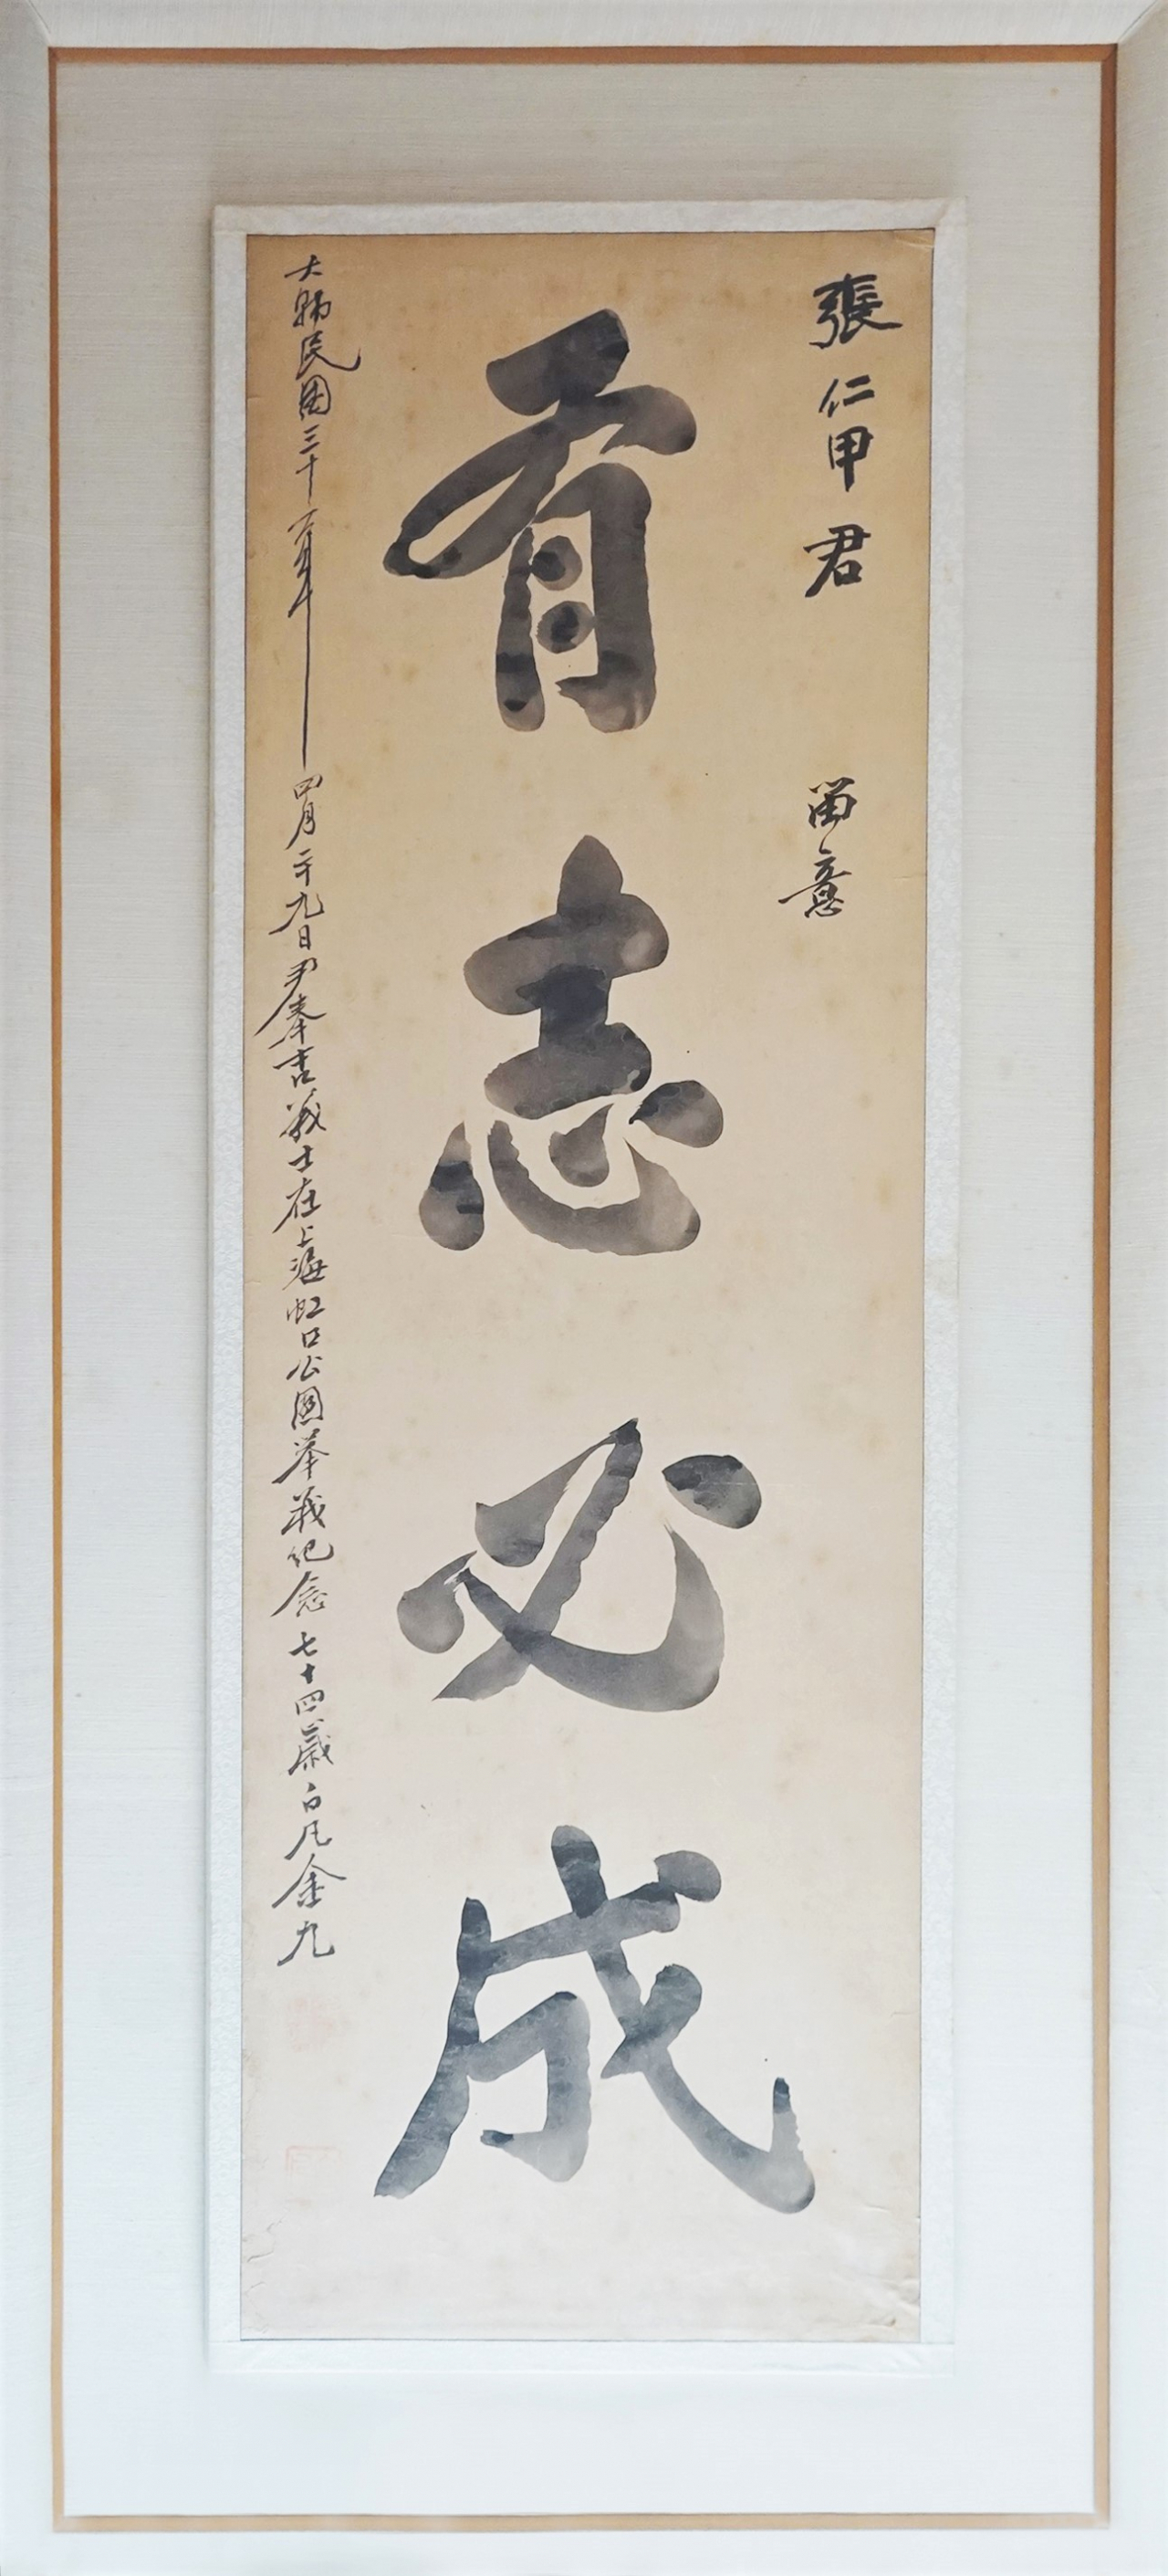 張仁甲君 留意
有志必成
大韓民國三十一年四月二十九日尹奉吉義士在上海虹口公園擧義紀念 七十四歲白凡金九